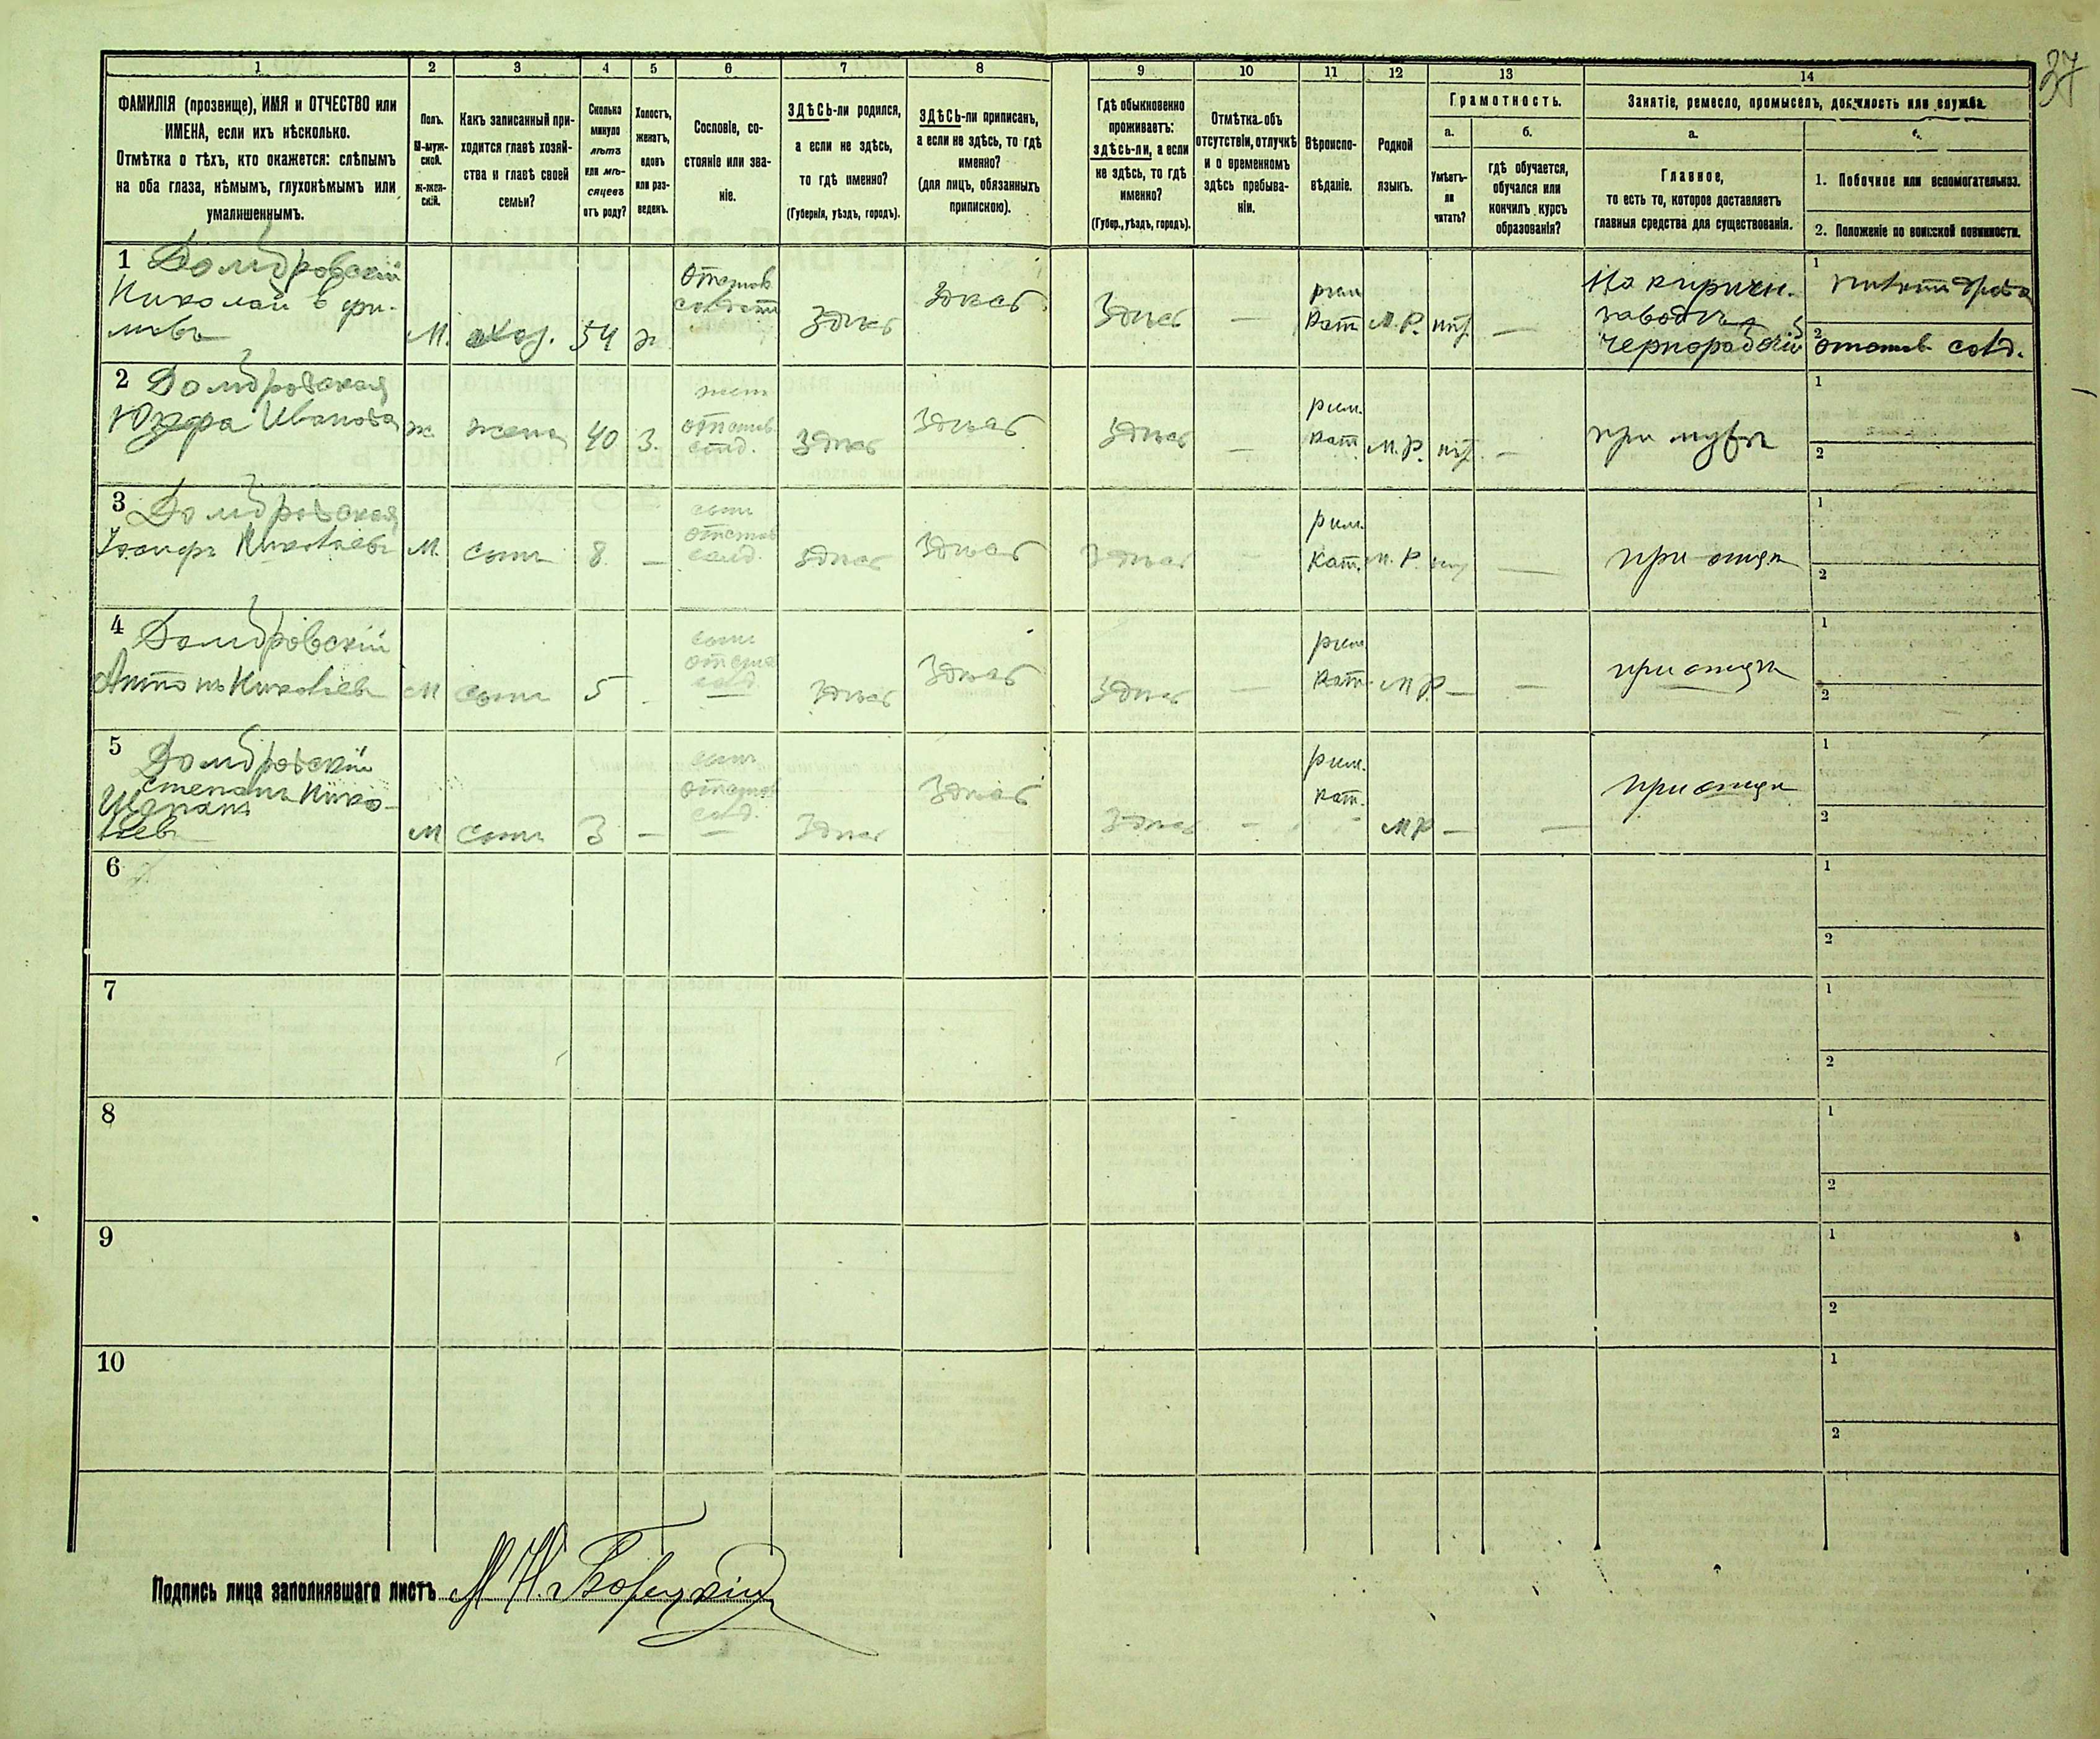 37
1 2 3 4 5 6 7 8 9 10 11 12 13 14
ФАМИЛІЯ (прозвище), ИМЯ и ОТЧЕСТВО или
ИМЕНА, если ихъ нѣсколько.
Отмѣтка о тѣхъ, кто окажется: слѣпымъ
на оба глаза, нѣмымъ, глухонѣмымъ или
умалишеннымъ.
Полъ.
М-муж-
ской.
ж-жен-
скій.
Какъ записанный при-
ходится главѣ хозяй-
ства и главѣ своей
семьи?
Сколько
минуло
лѣтъ
или мѣ-
сяцевъ
отъ роду?
Холостъ,
женатъ,
вдовъ
или раз-
веденъ.
Сословіе, со-
стояніе или зва-
ніе.
ЗДѢСЬ-ли родился,
а если не здѣсь,
то гдѣ именно?
(Губернія, уѣздъ, городъ).
ЗДѢСЬ-ли приписанъ,
а если не здѣсь, то гдѣ
именно?
(для лицъ, обязанныхъ
припискою).
Гдѣ обыкновенно
проживаетъ:
здѣсь-ли, а если
не здѣсь, то гдѣ
именно?
(Губер., уѣздъ, городъ).
Отмѣтка объ
отсутствіи, отлучкѣ
и о временномъ
здѣсь пребыва-
ніи.
Вѣроиспо-
вѣданіе.
Родной
языкъ.
Грамотность.
а.
Умѣетъ-
ли
читать?
б.
гдѣ обучается,
обучался или
кончилъ курсъ
образованія?
Занятіе, ремесло, промыселъ, должность или служба.
а.
Главное,
то есть то, которое доставляетъ
главныя средства для существованія.
1. Побочное или вспомогательное.
2. Положеніе по воинской повинности.
1 Домбровскій
Николай
М. хоз. 54 ж
Отстав.
солдатъ
здѣсь здѣсь здѣсь —
рим
кат М. Р. нѣт —
На кирпичн.
заводѣ
чернорабочій
1
2 отстав. солд.
2 Домбровская
Юзефа Иванова
ж. жена 40 з.
жена
отстав.
солд.
здѣсь здѣсь здѣсь —
рим.
кат М. Р. нѣт. —
при мужѣ
1
2
3 Домбровская
Іосифъ Николаевъ
М. сынъ 8 —
сынъ
отстав
солд.
здѣсь здѣсь здѣсь —
рим.
кат. М. Р. нѣт —
при отцѣ
1
2
4 Домбровскій
Антонъ Николаевъ
М сынъ 5 -
сынъ
отстав
солд.
здѣсь здѣсь здѣсь —
рим
кат. М Р. — —
при отцѣ
1
2
5 Домбровскій
Степанъ Нико-
Щепанъ
лаевъ
М сынъ 3 —
сынъ
отстав
солд.
здѣсь здѣсь здѣсь —
рим.
кат. М Р — —
при отцѣ
1
2
6
1
2
7
1
2
8
1
2
9
1
2
10
1
2
Подпись лица заполнявшаго листъ